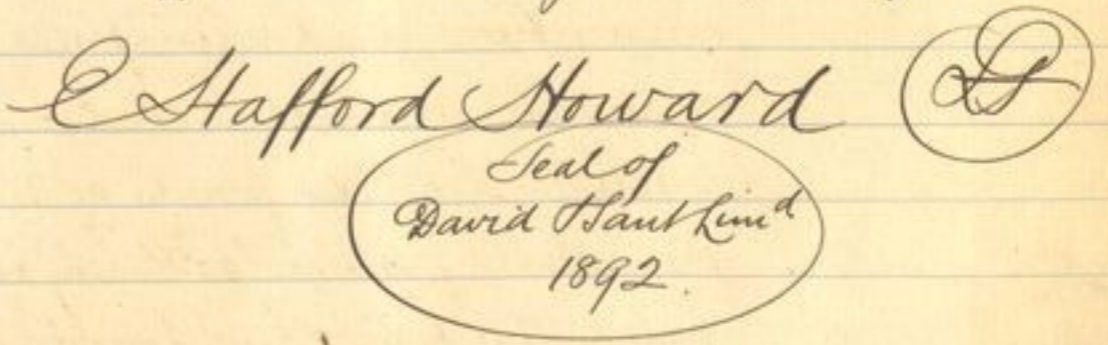 E Stafford Howard LS
Seal of
David Hant Limd
1892.